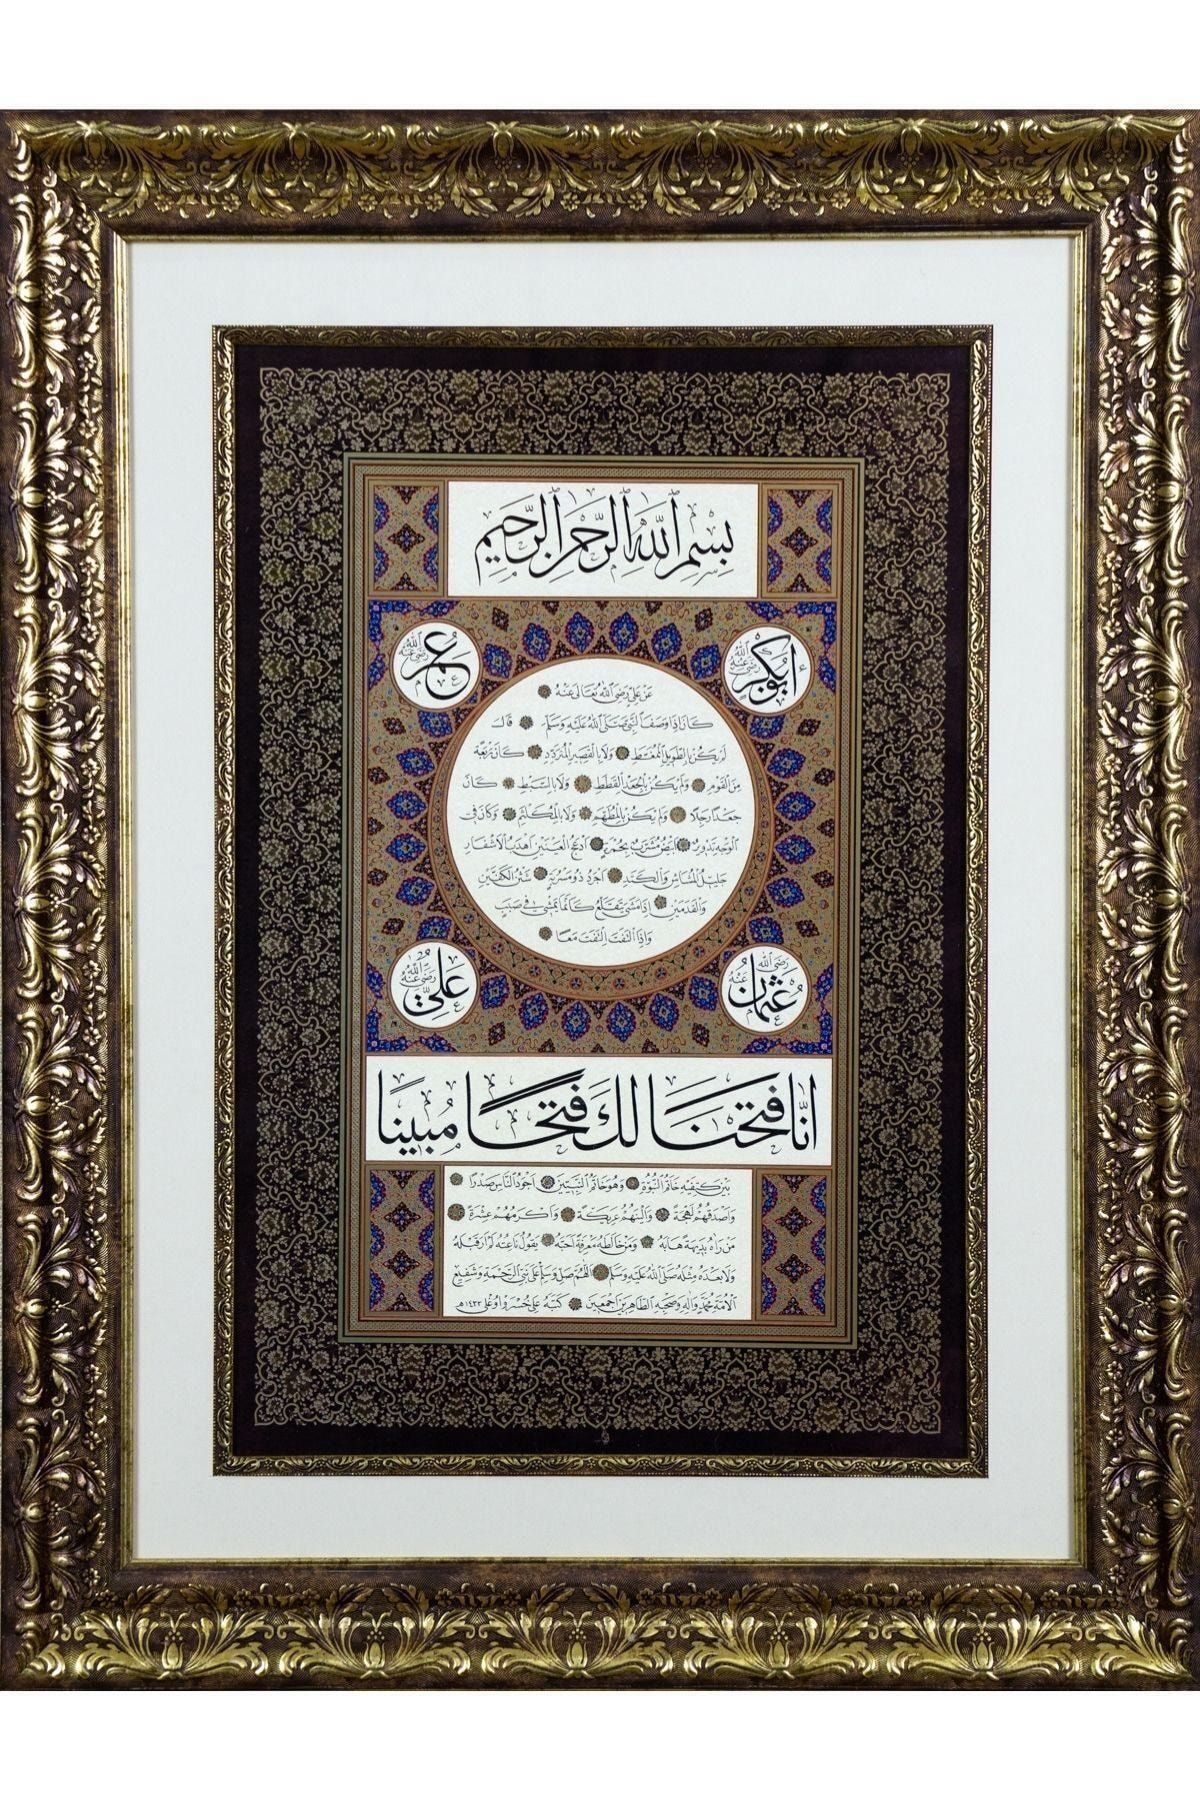 بِسْمِ اللّٰهِ الرَّحْمٰنِ الرَّحِيمِ
أَبُوبَكْرٍ رَضِيَ اللّٰهُ عَنْهُ
عُمَرُ رَضِيَ اللّٰهُ عَنْهُ
عَنْ عَلِيٍّ رَضِيَ اللّٰهُ تَعَالَى عَنْهُ
كَانَ إِذَا وَصَفَ النَّبِيَّ صَلَّى اللّٰهُ عَلَيْهِ وَسَلَّمَ قَالَ
لَمْ يَكُنْ بِالطَّوِيلِ الْمُمَّغَطِ وَلَا بِالْقَصِيرِ الْمُتَرَدِّدِ كَانَ رَبْعَةً
مِنَ الْقَوْمِ وَلَمْ يَكُنْ بِالْجَعْدِ الْقَطَطِ وَلَا بِالسَّبْطِ كَانَ
جَعْدًا رَجِلًا وَلَمْ يَكُنْ بِالْمُطَهَّمِ وَلَا بِالْمُكَلْثَمِ وَكَانَ فِي
الْوَجْهِ تَدْوِيرٌ أَبْيَضُ مُشْرَبٌ بِحُمْرَةٍ أَدْعَجُ الْعَيْنَيْنِ أَهْدَبُ الْأَشْفَارِ
جَلِيلُ الْمُشَاشِ وَالْكَتَدِ أَجْرَدُ ذُو مَسْرُبَةٍ شَثْنُ الْكَفَّيْنِ
وَالْقَدَمَيْنِ إِذَا مَشَى يَتَقَلَّعُ كَأَنَّمَا يَمْشِي فِي صَبَبٍ
وَإِذَا الْتَفَتَ الْتَفَتَ مَعًا
عُثْمَانُ رَضِيَ اللّٰهُ عَنْهُ
عَلِيٌّ رَضِيَ اللّٰهُ عَنْهُ
إِنَّا فَتَحْنَا لَكَ فَتْحًا مُبِينًا
بَيْنَ كَتِفَيْهِ خَاتَمُ النُّبُوَّةِ وَهُوَ خَاتَمُ النَّبِيِّينَ أَجْوَدُ النَّاسِ صَدْرًا
وَأَصْدَقُهُمْ لَهْجَةً وَأَلْيَنُهُمْ عَرِيكَةً وَأَكْرَمُهُمْ عِشْرَةً
مَنْ رَآهُ بَدِيهَةً هَابَهُ وَمَنْ خَالَطَهُ مَعْرِفَةً أَحَبَّهُ يَقُولُ نَاعِتُهُ لَمْ أَرَ قَبْلَهُ
وَلَا بَعْدَهُ مِثْلَهُ صَلَّى اللّٰهُ عَلَيْهِ وَسَلَّمَ اللّٰهُمَّ صَلِّ وَسَلِّمْ عَلَى نَبِيِّ الرَّحْمَةِ وَشَفِيعِ
الْأُمَّةِ مُحَمَّدٍ وَآلِهِ وَصَحْبِهِ الطَّاهِرِينَ أَجْمَعِينَ كَتَبَهُ عَلِي خُسْرَوْ أُوغْلِي ١٤٢٣هـ